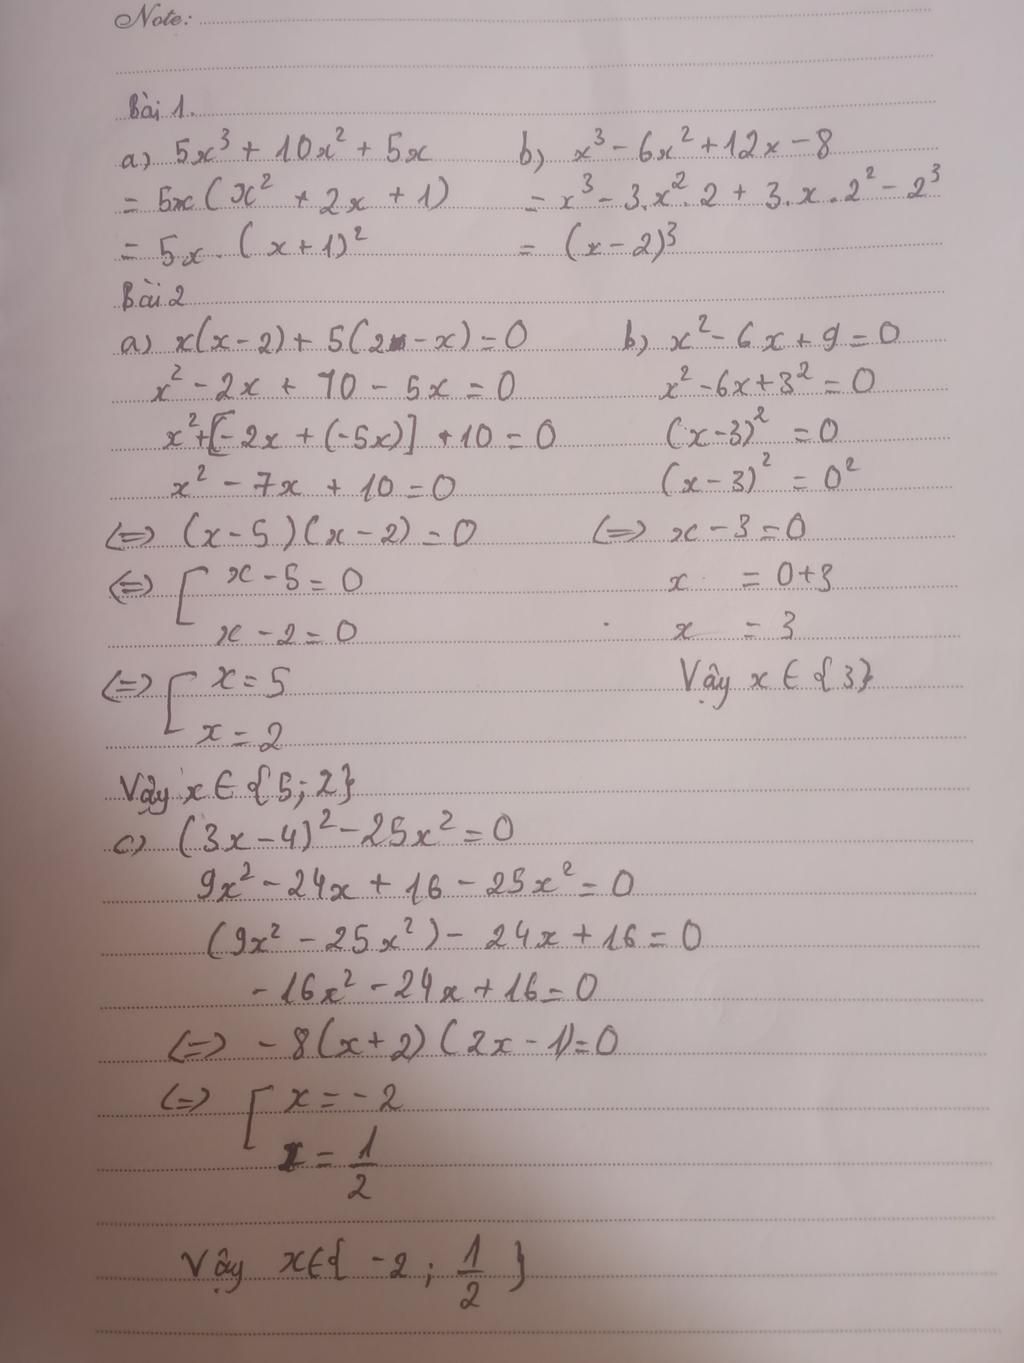 Note:
Bài 1.
a) 5x³ + 10x² + 5x
= 5x (x² + 2x + 1)
= 5x . (x + 1)²
b) x³ - 6x² + 12x - 8
= x³ - 3.x².2 + 3.x.2² - 2³
= (x - 2)³
Bài 2
a) x(x - 2) + 5(2 - x) = 0
x² - 2x + 10 - 5x = 0
x² + [-2x + (-5x)] + 10 = 0
x² - 7x + 10 = 0
(=) (x - 5)(x - 2) = 0
(=) [ x - 5 = 0
x - 2 = 0
(=) [ x = 5
x = 2
Vậy x ∈ {5; 2}
b) x² - 6x + 9 = 0
x² - 6x + 3² = 0
(x - 3)² = 0
(x - 3)² = 0²
(=) x - 3 = 0
x = 0 + 3
x = 3
Vậy x ∈ {3}
c) (3x - 4)² - 25x² = 0
9x² - 24x + 16 - 25x² = 0
(9x² - 25x²) - 24x + 16 = 0
- 16x² - 24x + 16 = 0
(=) - 8(x + 2)(2x - 1) = 0
(=) [ x = - 2
x = 1/2
Vậy x ∈ { -2 ; 1/2 }